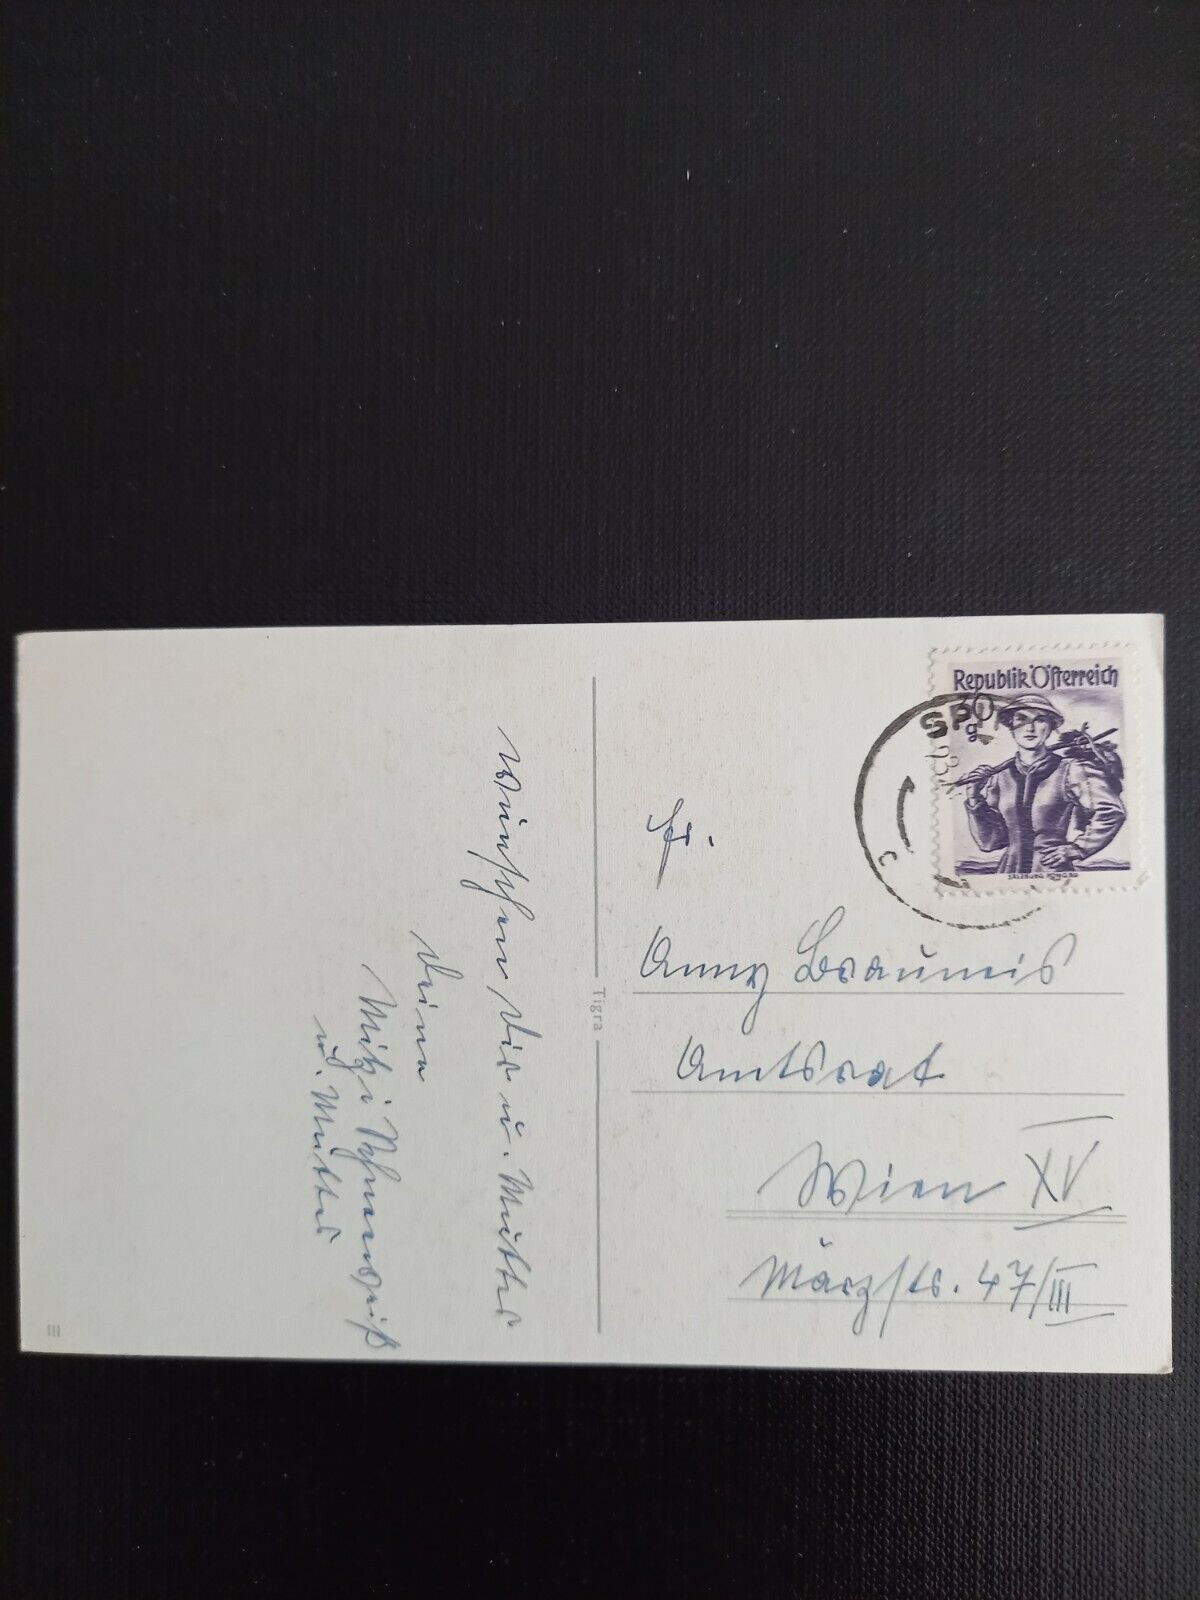 Wünschen Dir u. Mutter
Deine
Mitzi Schneeweiß
u. Mutter
Tigra
III
Republik Österreich
30
g
SALZBURG PONGAU
SP
c
Fr.
Anny Brauneis
Amtsrat
Wien XV
Märzstr. 47/III